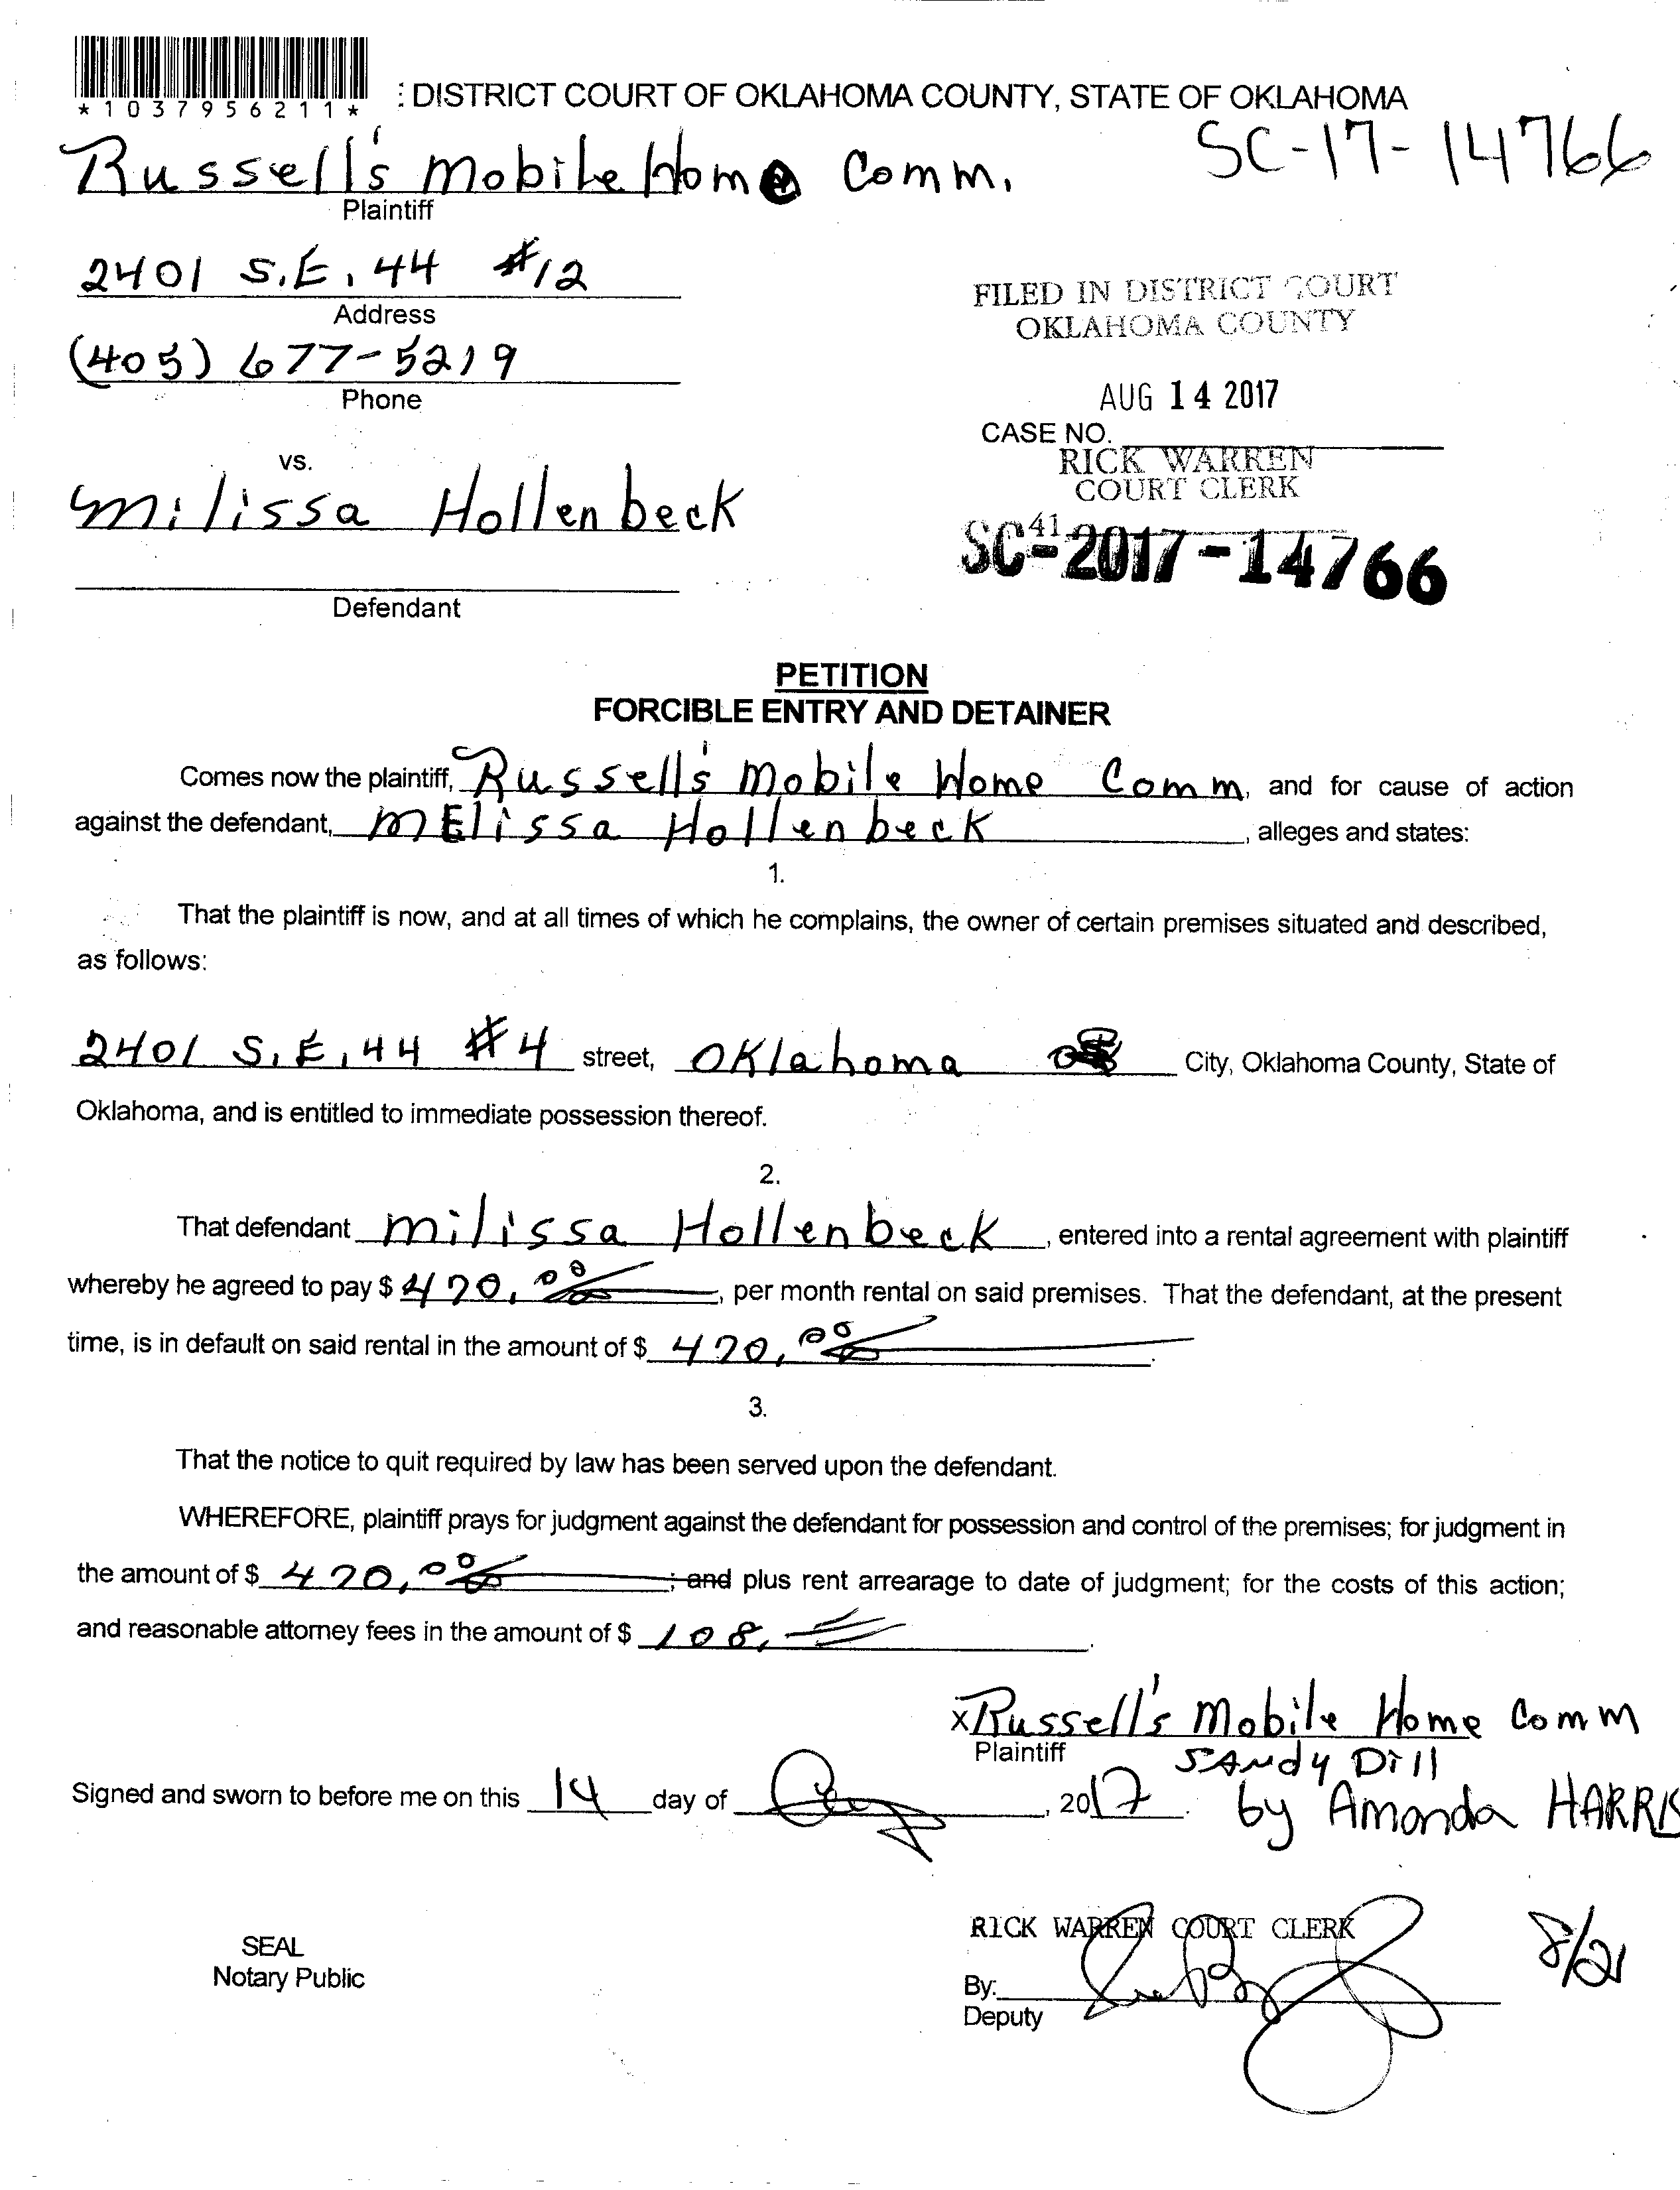 *1037956211*
: DISTRICT COURT OF OKLAHOMA COUNTY, STATE OF OKLAHOMA
Russell's Mobile Home Comm.
SC-17-14766
Plaintiff
2401 S.E. 44 #12
Address
FILED IN DISTRICT COURT
OKLAHOMA COUNTY
(405) 677-5219
Phone
AUG 14 2017
CASE NO.
RICK WARREN
COURT CLERK
vs.
Milissa Hollenbeck
41
SC-2017-14766
Defendant
PETITION
FORCIBLE ENTRY AND DETAINER
Comes now the plaintiff, Russell's Mobile Home Comm, and for cause of action
against the defendant, MElissa Hollenbeck, alleges and states:
1.
That the plaintiff is now, and at all times of which he complains, the owner of certain premises situated and described,
as follows:
2401 S.E. 44 #4 street, Oklahoma City, Oklahoma County, State of
Oklahoma, and is entitled to immediate possession thereof.
2.
That defendant Milissa Hollenbeck, entered into a rental agreement with plaintiff
whereby he agreed to pay $ 470.00, per month rental on said premises. That the defendant, at the present
time, is in default on said rental in the amount of $ 470.00.
3.
That the notice to quit required by law has been served upon the defendant.
WHEREFORE, plaintiff prays for judgment against the defendant for possession and control of the premises; for judgment in
the amount of $ 470.00; and plus rent arrearage to date of judgment; for the costs of this action;
and reasonable attorney fees in the amount of $ 108.
x Russell's Mobile Home Comm
Plaintiff
SANdy Dill
Signed and sworn to before me on this 14 day of , 2017.
by Amanda HARRIS
RICK WARREN COURT CLERK
8/21
SEAL
Notary Public
By:
Deputy